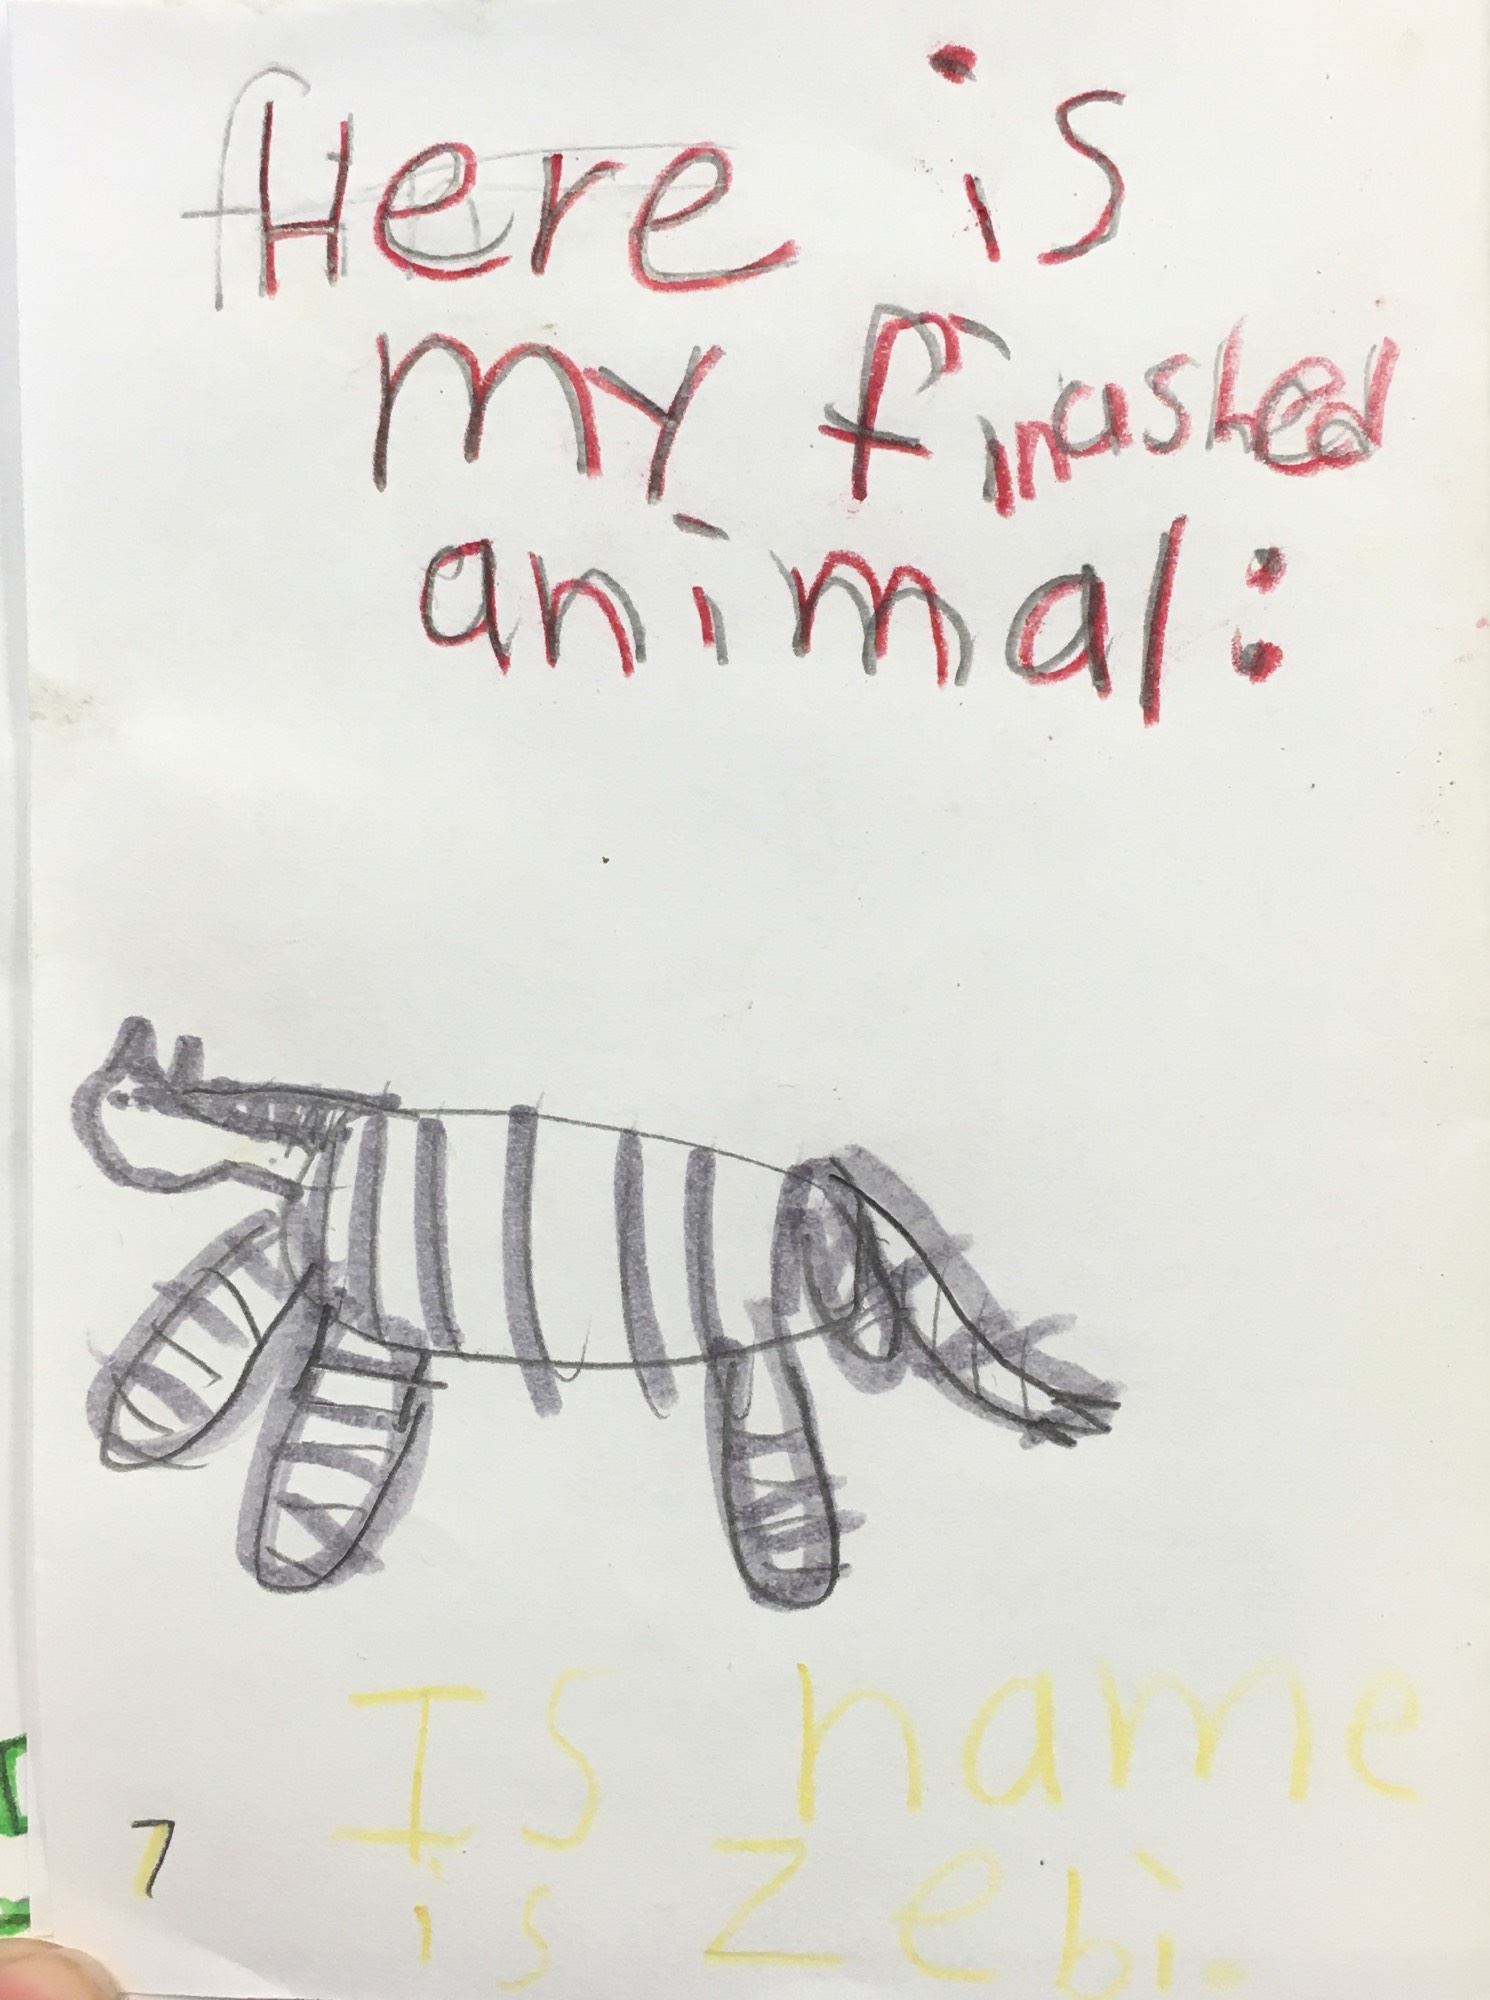 Here is
my finashed
animal:
Is name
is Zebi.
7